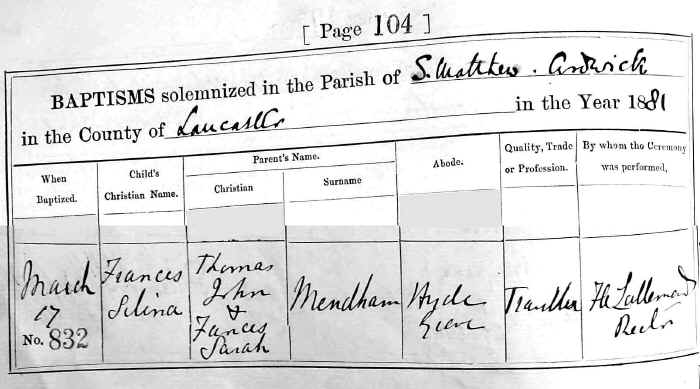 [ Page 104 ]
BAPTISMS solemnized in the Parish of S. Matthew. Ardwick
in the County of Lancaster in the Year 1881
When Baptized.
Child's Christian Name.
Parent's Name.
Christian
Surname
Abode.
Quality, Trade or Profession.
By whom the Ceremony was performed,
March
17
No. 832
Frances
Selina
Thomas
John
&
Frances
Sarah
Mendham
Hyde
Grove
Traveller
Rector